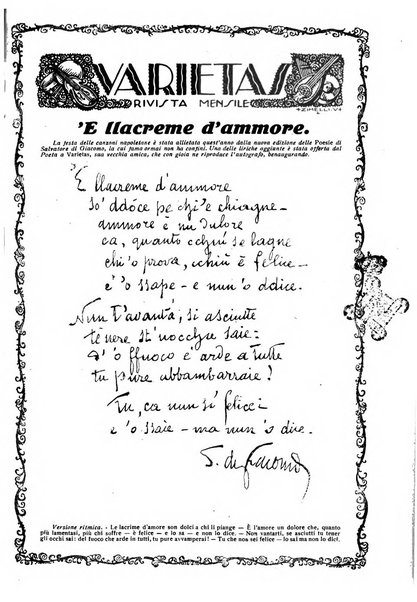 VARIETAS
RIVISTA MENSILE
'E llacreme d'ammore.
La festa delle canzoni napoletane è stata allietata quest'anno dalla nuova edizione delle Poesie di
Salvatore di Giacomo, la cui fama ormai non ha confini. Una delle liriche aggiunte è stata offerta dal
Poeta a Varietas, sua vecchia amica, che con gioia ne riproduce l'autografo, benaugurando.
'E llacreme d'ammore
so' ddóce pe chi 'e chiagne –
ammore è nu dulore
ca, quanto cchiù se lagne
chi 'o prova, cchiù è felice –
e 'o ssape – e nun 'o ddice.
Nun t'avantà, si asciutte
tenere st'uocchie saie:
d' 'o ffuoco ch'arde a tutte
tu pure abbambarraie!
Tu, ca nun si' felice
e 'o ssaie – ma nun 'o dice.
S. di Giacomo
Versione ritmica. - Le lacrime d'amore son dolci a chi li piange — È l'amore un dolore che, quanto
più lamentasi, più chi soffre — è felice — e lo sa — e non lo dice. — Non vantarti, se asciutti tu tener
gli occhi sai: del fuoco che arde in tutti, tu pure avvamperai! — Tu che non sei felice — lo sai ma non lo dici.